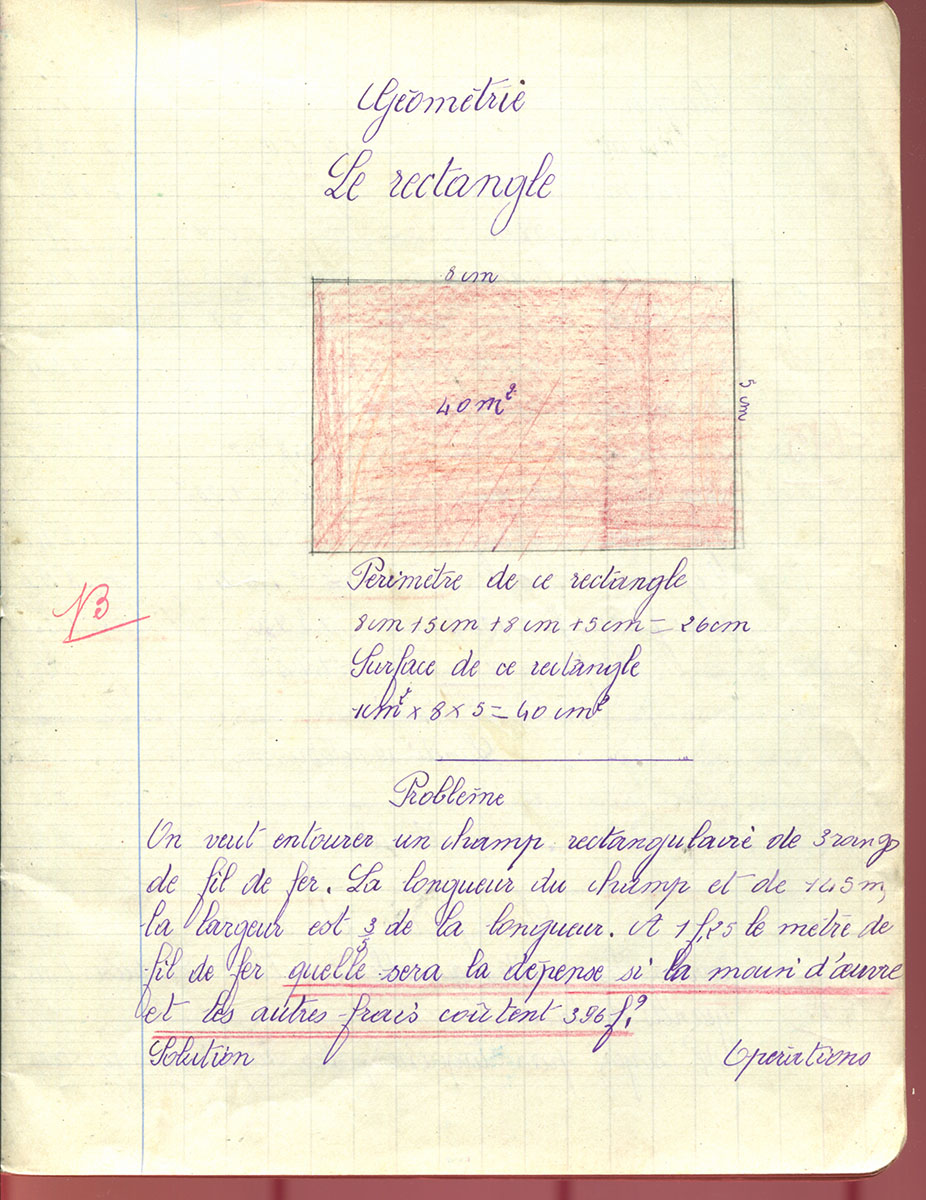 Géométrie
Le rectangle
8 cm
40 m²
5 cm
Périmètre de ce rectangle
8cm + 5cm + 8cm + 5cm = 26cm
Surface de ce rectangle
1cm² × 8 × 5 = 40 cm²
Problème
On veut entourer un champ rectangulaire de 3 rangs
de fil de fer. La longueur du champ et de 145 m,
la largeur est 3/5 de la longueur. A 1f,25 le mètre de
fil de fer quelle sera la dépense si la main d'œuvre
et les autres frais coûtent 396f.?
Solution
Opérations